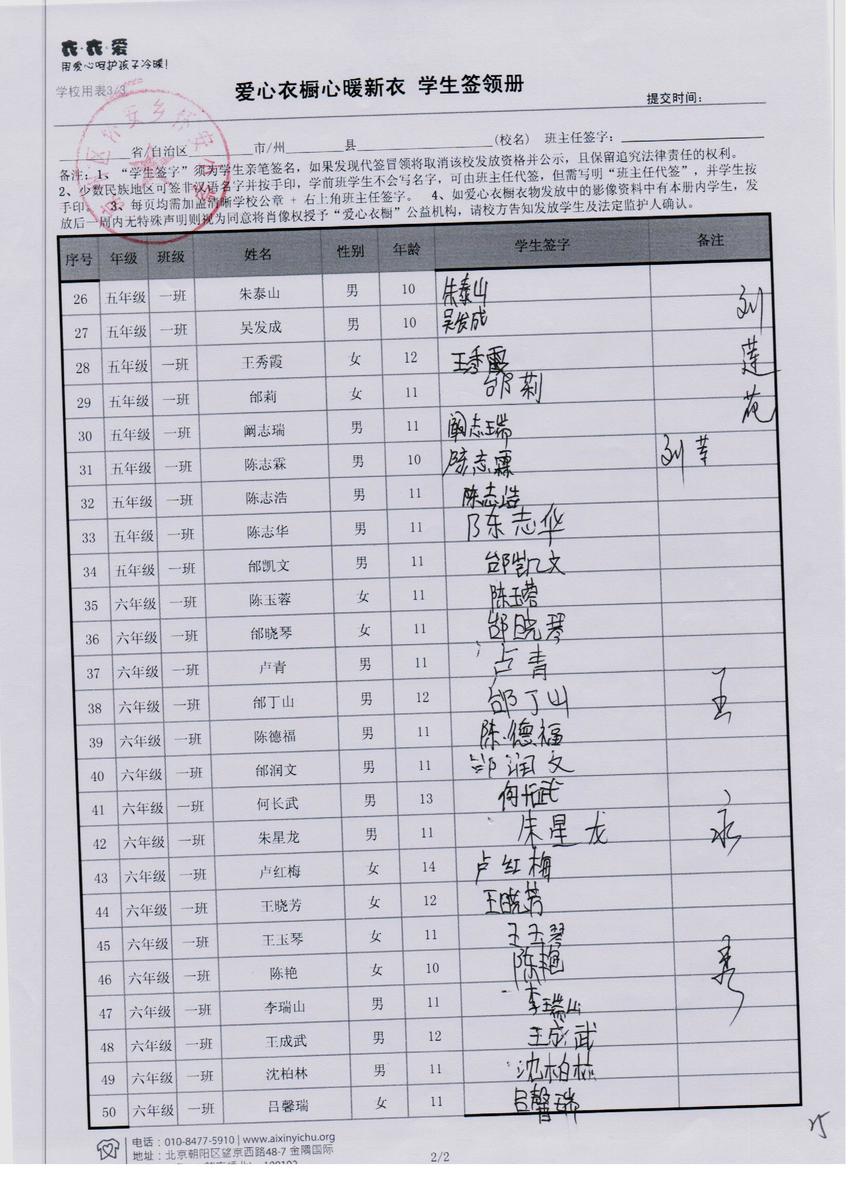 衣·衣·爱
用爱心呵护孩子冷暖!
学校用表3/3
爱心衣橱心暖新衣 学生签领册
提交时间:
省/自治区 市/州 县 (校名) 班主任签字:
备注:1、“学生签字”须为学生亲笔签名,如果发现代签冒领将取消该校发放资格并公示,且保留追究法律责任的权利。
2、少数民族地区可签非汉语名字并按手印,学前班学生不会写名字,可由班主任代签,但需写明“班主任代签”,并学生按
手印。 3、每页均需加盖清晰学校公章 + 右上角班主任签字。 4、如爱心衣橱衣物发放中的影像资料中有本册内学生,发
放后一周内无特殊声明则视为同意将肖像权授予“爱心衣橱”公益机构,请校方告知发放学生及法定监护人确认。
序号 年级 班级 姓名 性别 年龄 学生签字 备注
26 五年级 一班 朱泰山 男 10 朱泰山
27 五年级 一班 吴发成 男 10 吴发成 刘
28 五年级 一班 王秀霞 女 12 王秀霞 莲
29 五年级 一班 邰莉 女 11 邰莉
30 五年级 一班 阚志瑞 男 11 阚志瑞 花
31 五年级 一班 陈志霖 男 10 陈志霖 刘莲
32 五年级 一班 陈志浩 男 11 陈志浩
33 五年级 一班 陈志华 男 11 陈志华
34 五年级 一班 邰凯文 男 11 邰凯文
35 六年级 一班 陈玉蓉 女 11 陈玉蓉
36 六年级 一班 邰晓琴 女 11 邰晓琴
37 六年级 一班 卢青 男 11 卢青
38 六年级 一班 邰丁山 男 12 邰丁山 王
39 六年级 一班 陈德福 男 11 陈德福
40 六年级 一班 邰润文 男 11 邰润文
41 六年级 一班 何长武 男 13 何长武
42 六年级 一班 朱星龙 男 11 朱星龙 永
43 六年级 一班 卢红梅 女 14 卢红梅
44 六年级 一班 王晓芳 女 12 王晓芳
45 六年级 一班 王玉琴 女 11 王玉琴
46 六年级 一班 陈艳 女 10 陈艳 秀
47 六年级 一班 李瑞山 男 11 李瑞山
48 六年级 一班 王成武 男 12 王成武
49 六年级 一班 沈柏林 男 11 沈柏林
50 六年级 一班 吕馨瑞 女 11 吕馨瑞
电话:010-8477-5910 | www.aixinyichu.org
地址:北京朝阳区望京西路48-7 金隅国际
2/2
25